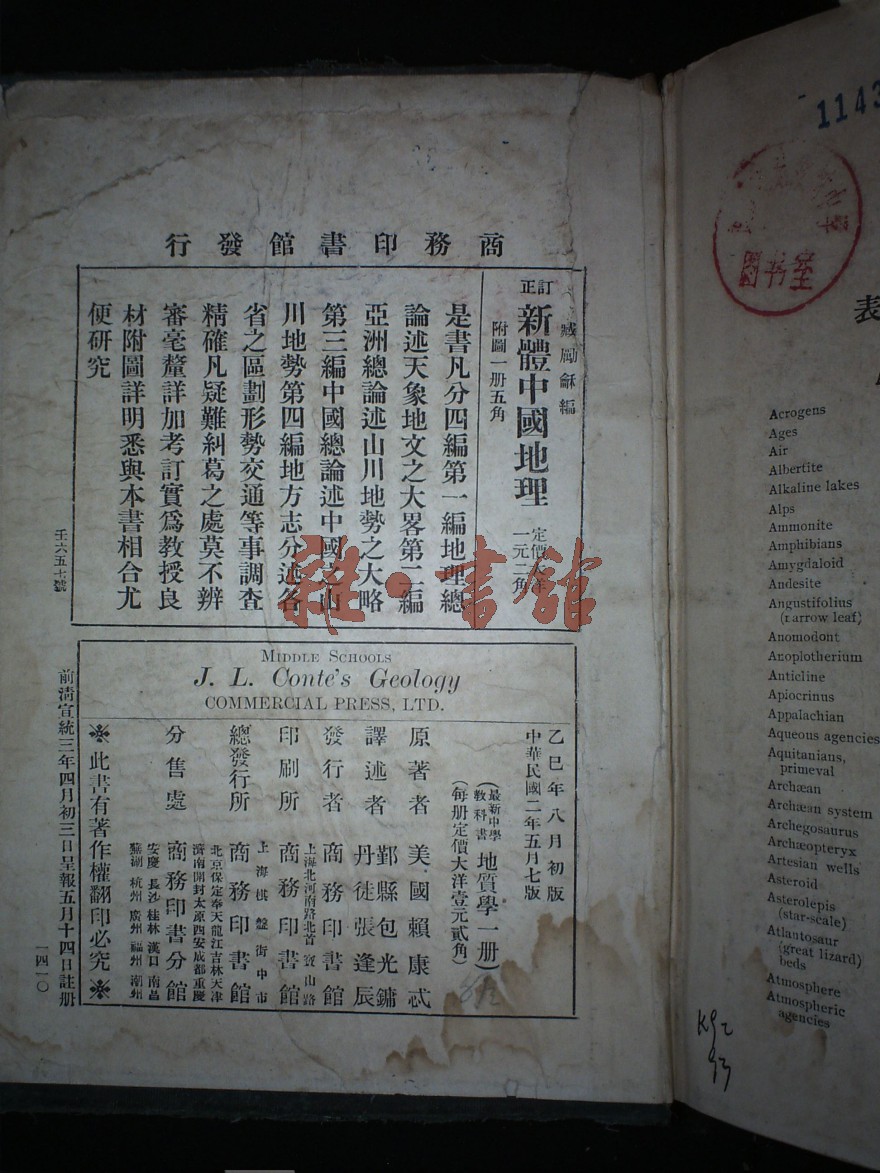 商務印書館發行
臧勵龢編
訂正
新體中國地理
定價大洋
一元二角
附圖一册五角
是書凡分四編第一編地理總
論述天象地文之大畧第二編
亞洲總論述山川地勢之大略
第三編中國總論述中國之山
川地勢第四編地方志分述各
省之區劃形勢交通等事調查
精確凡疑難糾葛之處莫不辨
審毫釐詳加考訂實爲教授良
材附圖詳明悉與本書相合尤
便研究
壬六五七號
MIDDLE SCHOOLS
J. L. Conte's Geology
COMMERCIAL PRESS, LTD.
乙巳年八月初版
中華民國二年五月七版
(最新中學
教科書
地質學一册)
(每册定價大洋壹元貳角)
原著者 美國賴康忒
譯述者 鄞縣包光鏞
丹徒張逢辰
發行者 商務印書館
印刷所 上海北河南路北首寶山路
商務印書館
總發行所 上海棋盤街中市
商務印書館
分售處 北京保定奉天龍江吉林天津
濟南開封太原西安成都重慶
商務印書分館
安慶長沙桂林漢口南昌
蕪湖杭州廣州福州潮州
※此書有著作權翻印必究※
前清宣統三年四月初三日呈報五月十四日註册
一四一〇
雜·書館
1143
圖书室
表
Acrogens
Ages
Air
Albertite
Alkaline lakes
Alps
Ammonite
Amphibians
Amygdaloid
Andesite
Angustifolius
(narrow leaf)
Anomodont
Anoplotherium
Anticline
Apiocrinus
Appalachian
Aqueous agencies
Aquitanians,
primeval
Archæan
Archæan system
Archegosaurus
Archæopteryx
Artesian wells
Asteroid
Asterolepis
(star-scale)
Atlantosaur
(great lizard)
beds
Atmosphere
Atmospheric
agencies